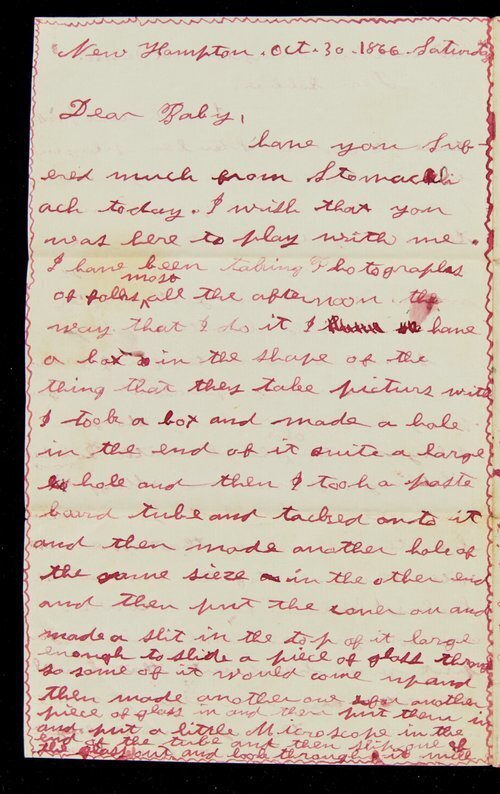 New Hampton. Oct. 30. 1866. Saturday
Dear Baby,
have you suf-
ered much from Stomach
ach today. I wish that you
was here to play with me.
I have been taking Photographs
most
of folks all the afternoon the
way that I do it I have
a box in the shape of the
thing that they take picturs with
I took a box and made a hole
in the end of it quite a large
hole and then I took a paste
board tube and tacked onto it
and then made another hole of
the same sieze in the other end
and then put the cover on and
made a slit in the top of it large
enough to slide a piece of glass through
so some of it would come up and
then made another one for another
piece of glass in and then put them in
and put a little Microscope in the
end of the tube and then slip one of
the glass out and look through it will